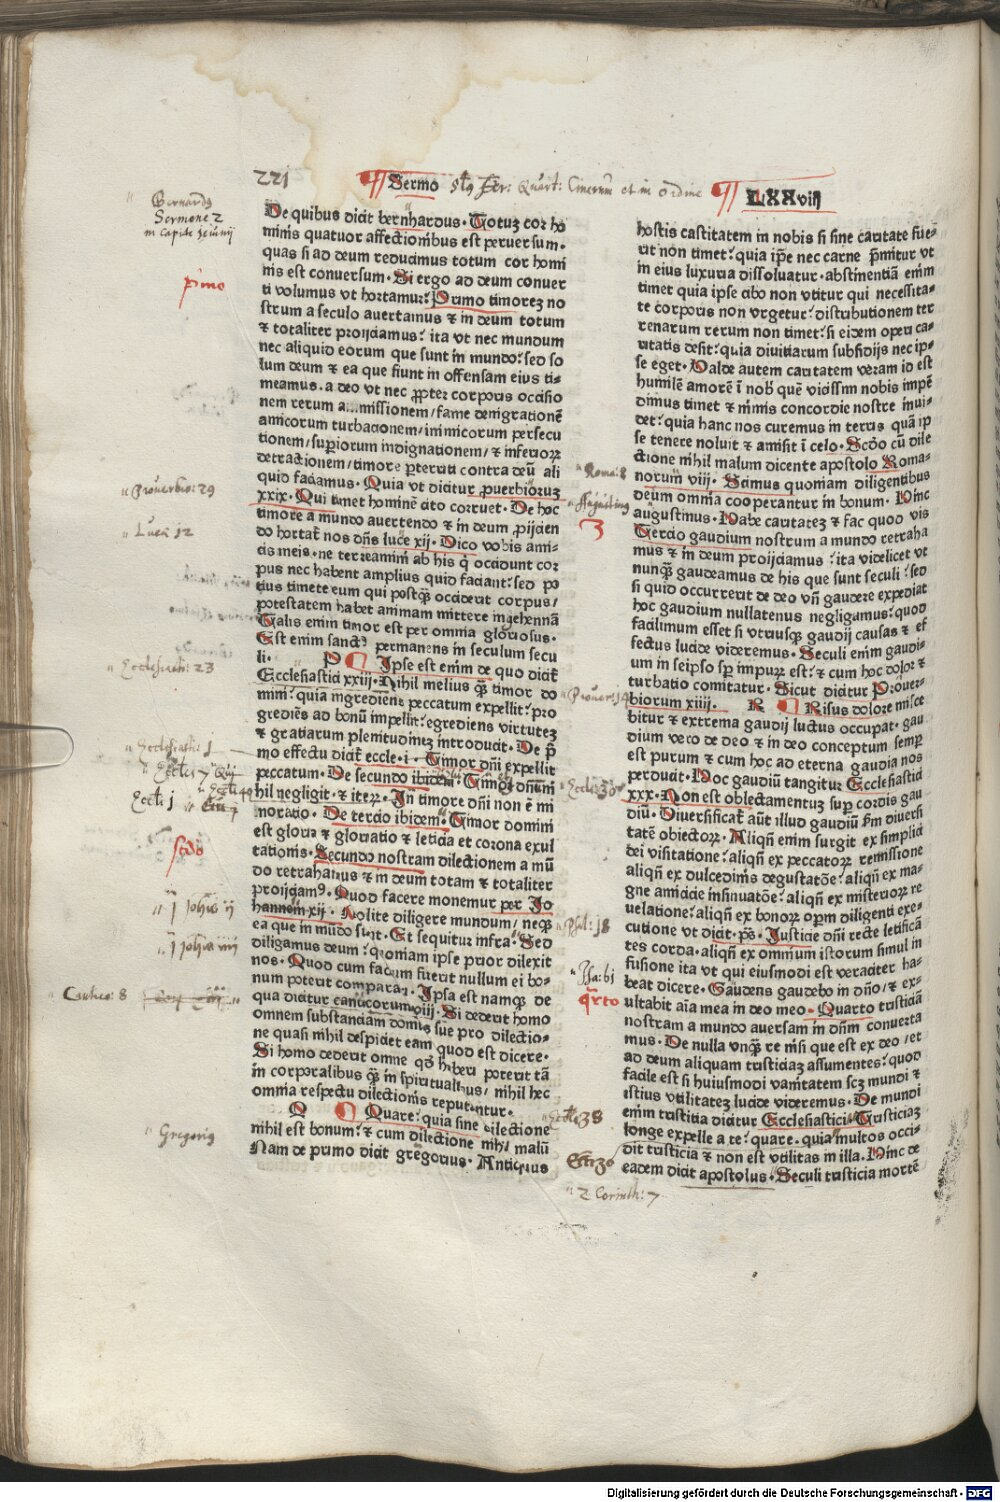 221
Sermo
LXXviij
De quibus dicit bernhardus. Totuz cor ho
minis quatuor affectionibus est peruersum.
quas si ad deum reducimus totum cor homi
nis est conuersum. Si ergo ad deum conuer
ti volumus vt hortamur? Primo timorez no
strum a seculo auertamus ⁊ in deum totum
⁊ totaliter proijciamus? ita vt nec mundum
nec aliquid eorum que sunt in mundo? sed so
lum deum ⁊ ea que fiunt in offensam eius ti-
meamus. a deo vt nec propter corporis occisio
nem rerum missionem/fame denigrationē
amicorum turbationem/inimicorum persecu
tionem/superiorum indignationem/⁊ inferiorꝝ
detractionem/timore perterriti contra deū ali
quid faciamus. Quia vt dicitur prouerbioruz
xxix. Qui timet hominē cito corruet. De hoc
timore a mundo auertendo ⁊ in deum proijcien
do hortat nos dn̄s luce xij. Dico vobis ami-
cis meis. ne terreamini ab his q̄ occidunt cor
pus nec habent amplius quid faciant? sed po
tius timete eum qui postq̄ occiderit corpus/
potestatem habet animam mittere in gehennā
Talis enim timor est per omnia gloriosus.
Est enim sanctꝰ permanens in seculum secu
li. P Ipse est enim de quo dicit
Ecclesiastici xxiij. Nihil melius q̄ timor do
mini? quia ingrediens peccatum expellit? pro
grediēs ad bonū impellit? egrediens virtutez
⁊ gratiarum plenitudinez introducit. De p̄
mo effectu dicit eccle. i. Timor dn̄i expellit
peccatum. De secundo ibidem. Timens dn̄m ni
hil negligit. ⁊ iterꝝ. In timore dn̄i non ē mi
noratio. De tercio ibidem. Timor domini
est gloria ⁊ gloriatio ⁊ leticia et corona exul
tationis. Secundo nostram dilectionem a mū
do retrahamus ⁊ in deum totam ⁊ totaliter
proijciamꝰ. Quod facere monemur per Io
hannem xij. Nolite diligere mundum/neq̄
ea que in mūdo sunt. Et sequitur infra. Sed
diligamus deum? quoniam ipse prior dilexit
nos. Quod cum factum fuerit nullum ei bo-
num poterit comparari. Ipsa est namq̄ de
qua dicitur canticorum viij. Si dederit homo
omnem substanciam domus sue pro dilectio-
ne quasi nihil despiciet eam quod est dicere.
Si homo dederit omne qd̓ habere poterit tā
in corporalibus q̄ in spiritualibus/nihil hec
omnia respectu dilectionis reputantur.
Q Quare? quia sine dilectione
nihil est bonum? ⁊ cum dilectione nihil malū
Nam de primo dicit gregorius. Anticus
hostis castitatem in nobis si sine caritate fue-
rit non timet? quia ip̄e nec carne premitur vt
in eius luxuria dissoluatur. abstinentiā enim
timet quia ipse cibo non vtitur qui necessita-
te corporis non vrgetur? distributionem ter
renarum rerum non timet? si eidem operi ca-
ritatis desit? quia diuitiarum subsidijs nec ip-
se eget. Valde autem caritatem veram id est
humilē amorē ī nob̓ quē vicissim nobis impē
dimus timet ⁊ nimis concordie nostre inui-
det? quia hanc nos curemus in terris quā ip
se tenere noluit ⁊ amisit ī celo. Scd̓o cū dile
ctione nihil malum dicente apostolo Roma-
norum viij. Scimus quoniam diligentibus
deum omnia cooperantur in bonum. Hinc
augustinus. Habe caritatez ⁊ fac quod vis
Tercio gaudium nostrum a mundo retraha
mus ⁊ in deum proijciamus? ita videlicet vt
nunq̄ gaudeamus de his que sunt seculi? sed
si quid occurrerit de deo vn̄ gaudere expediat
hoc gaudium nullatenus negligamus? quod
facilimum esset si vtriusq̄ gaudij causas ⁊ ef
fectus lucide videremus. Seculi enim gaudi-
um in seipso sp̄ impurꝝ est? ⁊ cum hoc dolor ⁊
turbatio comitatur. Sicut dicitur Prouer-
biorum xiiij. R Risus dolore misce
bitur ⁊ extrema gaudij luctus occupat. gau
dium vero de deo ⁊ in deo conceptum semper
est purum ⁊ cum hoc ad eterna gaudia nos
perducit. Hoc gaudiū tangitur Ecclesiastici
xxx. Non est oblectamentuz super cordis gau
diū. Diuersificat̓ aūt illud gaudiū s̄m diuersi
tatē obiectorꝝ. Aliqn̄ enim surgit ex simplici
dei visitatione? aliqn̄ ex peccatorꝝ remissione
aliqn̄ ex dulcedinis degustatōe? aliqn̄ ex ma-
gne amicicie insinuatōe? aliqn̄ ex misteriorꝝ re
uelatione? aliqn̄ ex bonorꝝ operm diligenti exe-
cutione vt dicit. ps̄. Iusticie dn̄i recte letificā
tes corda. aliqn̄ ex omnium istorum simul in
fusione ita vt qui eiusmodi est veraciter ha-
beat dicere. Gaudens gaudebo in dn̄o/⁊ ex-
ultabit aīa mea in deo meo. Quarto tristiciā
nostram a mundo auersam in dn̄m conuerta
mus. De nulla vnq̄ re nisi que est ex deo/et
ad deum aliquam tristiciaz assumentes? quod
facile est si huiusmodi vanitatem scz mundi ⁊
istius vtilitatez lucide videremus. De mundi
enim tristitia dicitur Ecclesiastici. Tristiciaz
longe expelle a te? quare. quia multos occi-
dit tristicia ⁊ non est vtilitas in illa. Hinc de
eadem dicit apostolus. Seculi tristicia mortē
Bernardꝰ
Sermone 2
primo
Prouerbio: 29
Luce 12
Ecclesiasti: 23
Ecclesiasti: 1
Eccli j
scdo
Cantico: 8
Gregoriꝰ
Roma: 8
Augustinꝰ
3
Prouer: 14
Eccles 30
Psal: 18
Isa: 61
qrto
2 Corinth: 7
Digitalisierung gefördert durch die Deutsche Forschungsgemeinschaft - DFG